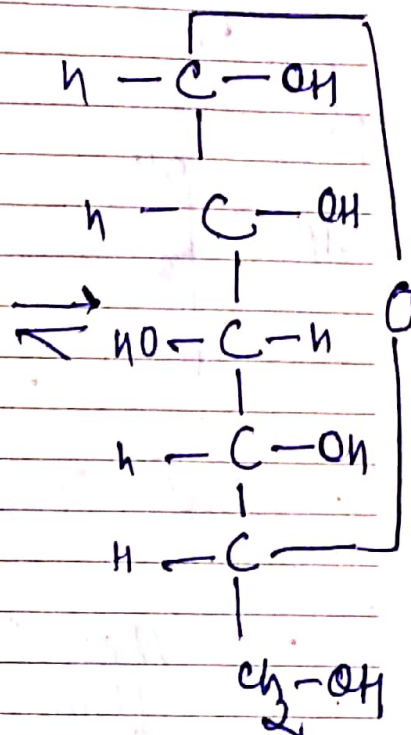 H — C — OH
H — C — OH
O
⇌ HO — C — H
H — C — OH
H — C
CH₂ — OH